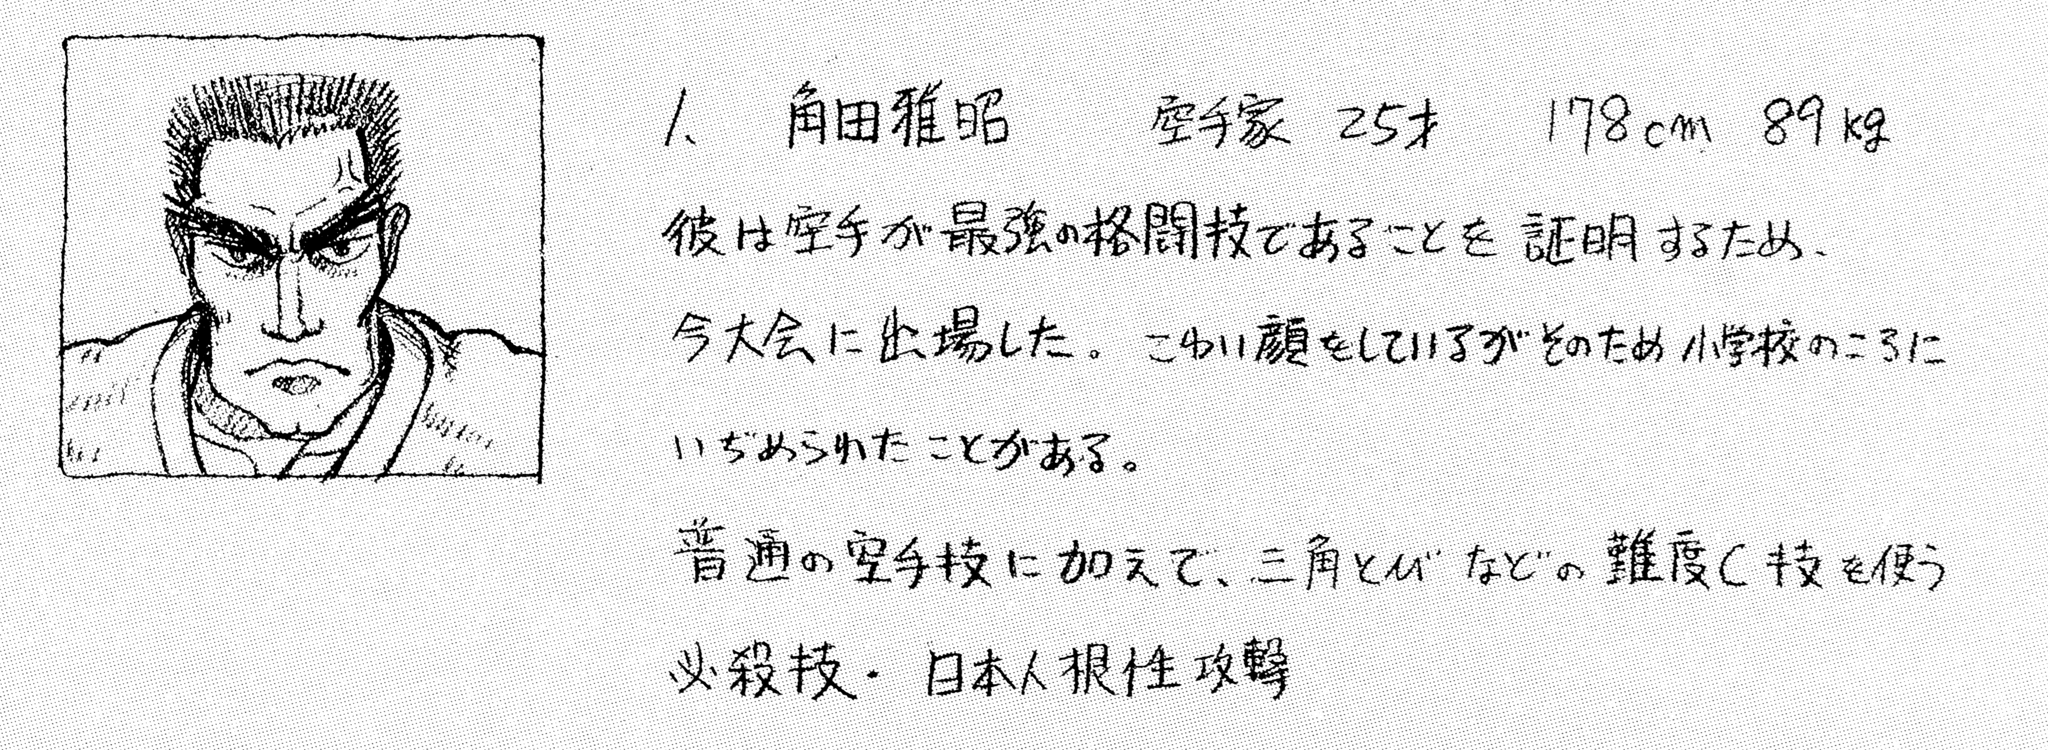 1、 角田雅昭 空手家 25才 178cm 89kg
彼は空手が最強の格闘技であることを証明するため、
今大会に出場した。こわい顔をしているがそのため小学校のころに
いぢめられたことがある。
普通の空手技に加えて、三角とびなどの難度C技を使う
必殺技・日本人根性攻撃